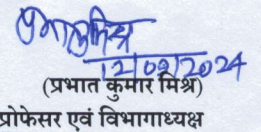 12/09/2024
(प्रभात कुमार मिश्र)
प्रोफेसर एवं विभागाध्यक्ष